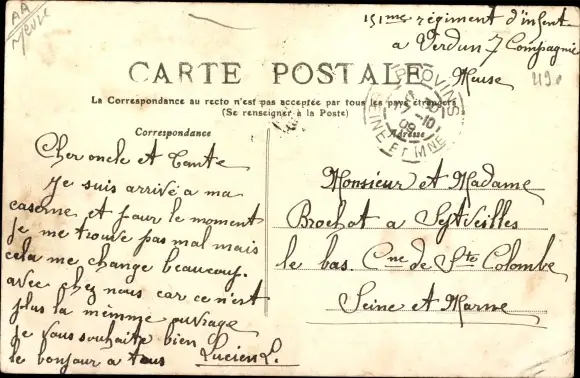 AA
Meuse
151me régiment d'infent
a Verdun 7 Compagnie
Meuse
CARTE POSTALE
La Correspondance au recto n'est pas acceptée par tous les pays étrangers
(Se renseigner à la Poste)
PROVINS
10
09
SEINE ET MNE
Correspondance
Adresse
Cher oncle et Tante
Je suis arrivé a ma
caserne et pour le moment
Je me trouve pas mal mais
cela me change beaucoup.
avec chez nous car ce n'est
plus la mèmme ouvrage
Je vous souhaite bien
le bonjour a tous Lucien L.
Monsieur et Madame
Brochot a Septveilles
le bas. Cne de Ste Colombe
Seine et Marne